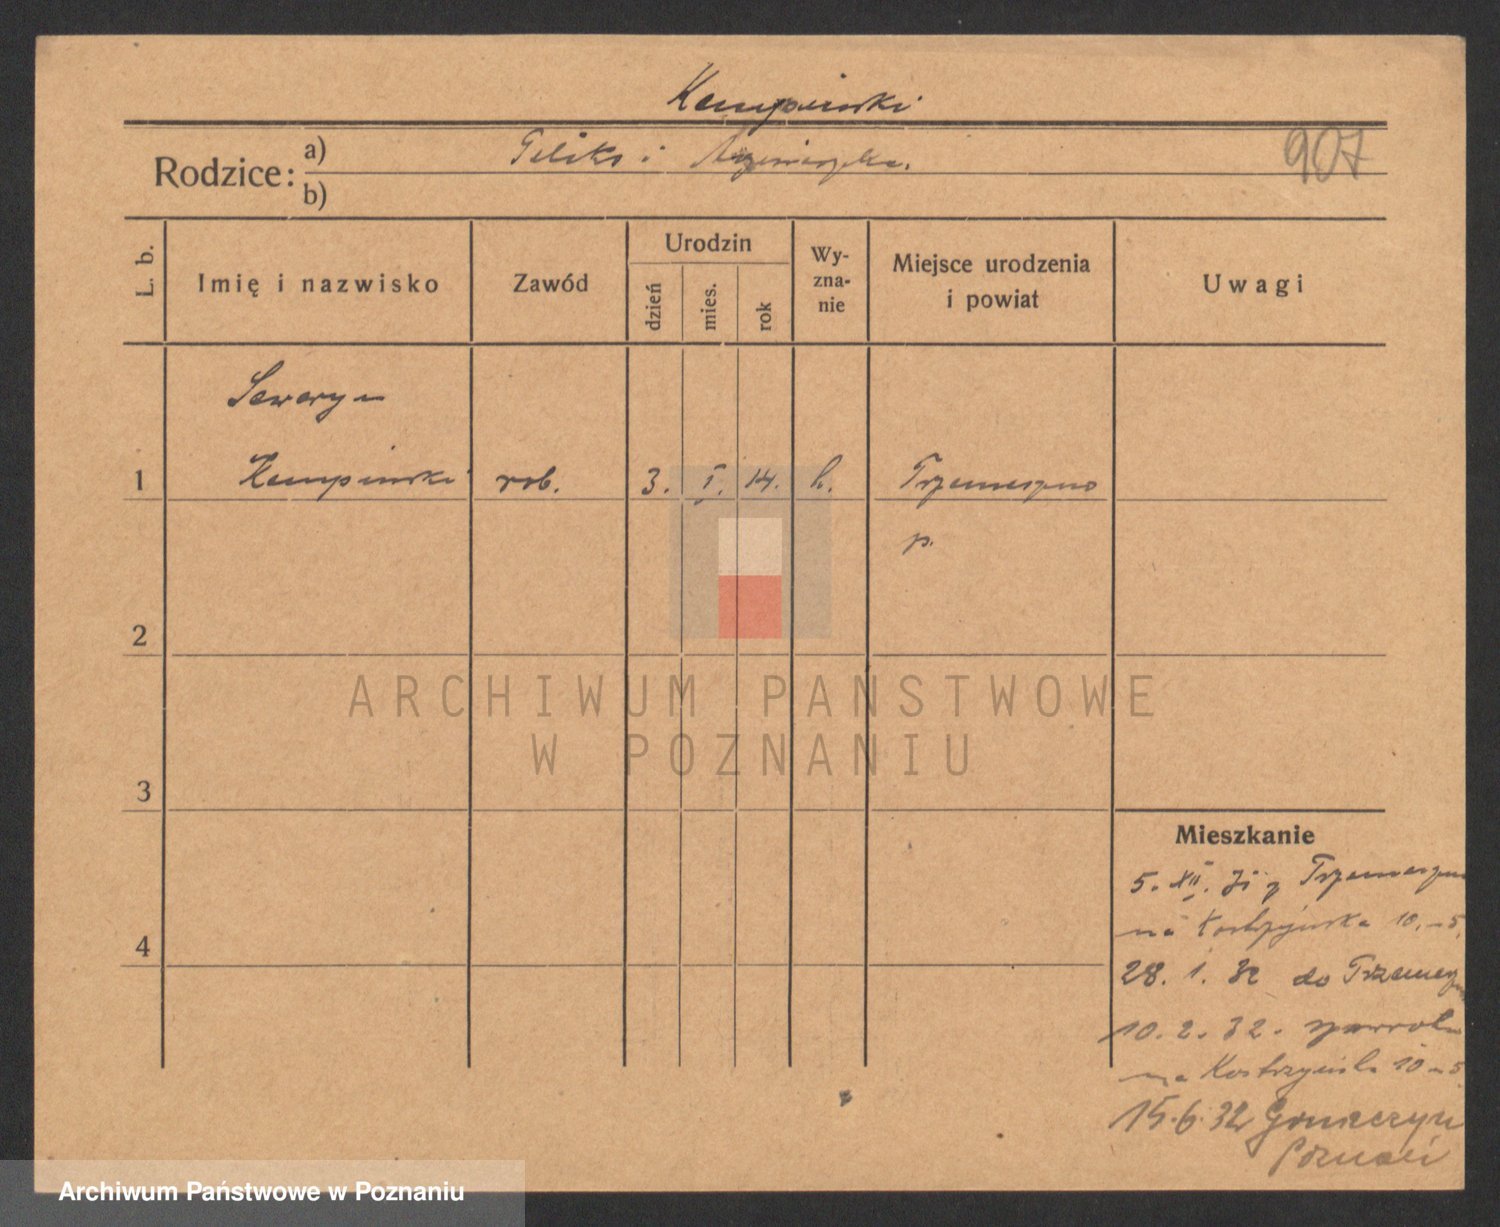 Kempinski
Rodzice: a) Feliks i Agnieszka. 907
b)
L. b.
Imię i nazwisko
Zawód
Urodzin
dzień
mies.
rok
Wy-
zna-
nie
Miejsce urodzenia
i powiat
Uwagi
Seweryn
1 Kempinski rob. 3. I. 14. k. Trzemeszno
p.
2
ARCHIWUM PAŃSTWOWE
W POZNANIU
3
Mieszkanie
5. XII. 31 z Trzemeszna
na Kostrzyńska 10
4
28. 1. 32 do Trzemeszna
10. 2. 32.
na Kostrzyńska 10
15.6.32
Poznań
Archiwum Państwowe w Poznaniu